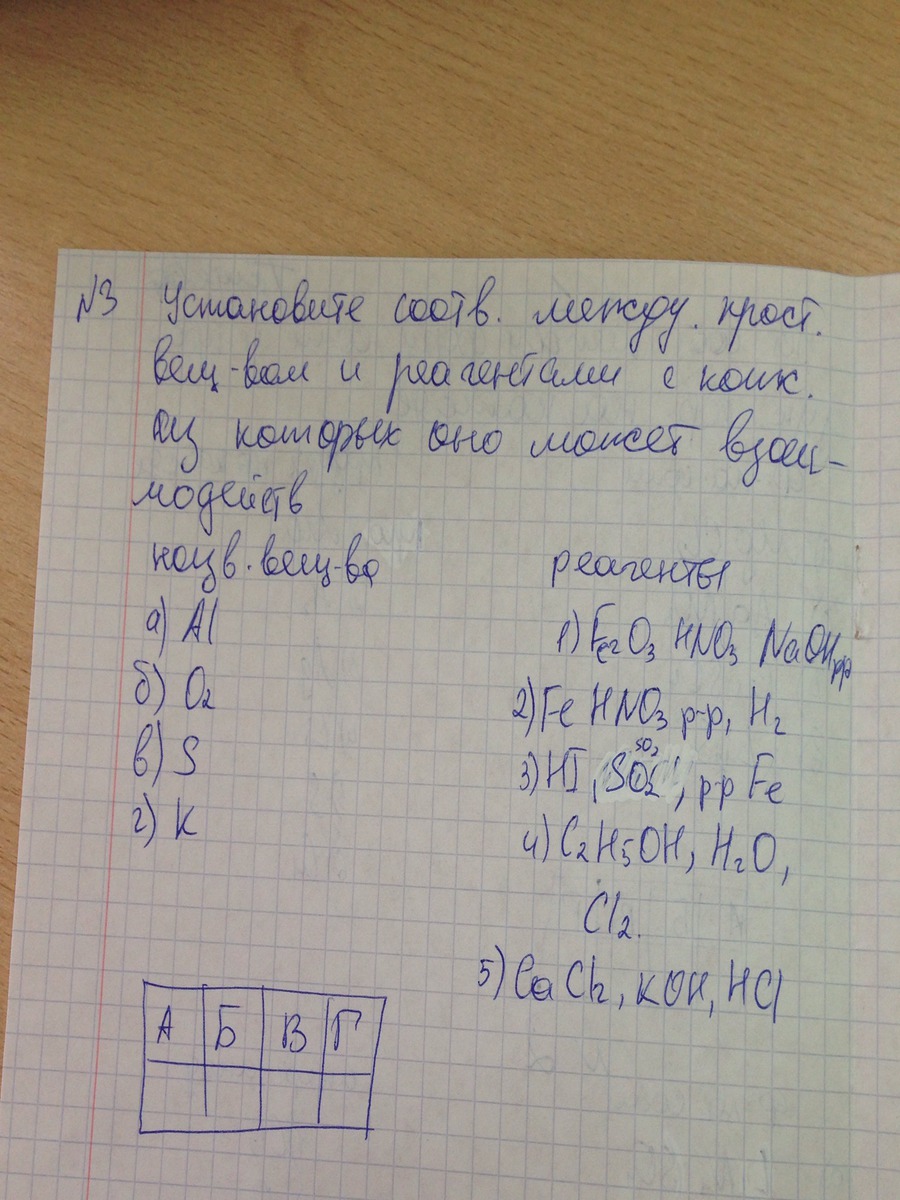 №3 Установите соотв. между прост.
вещ-вом и реагентами с кажд.
из которых оно может взаи-
модейств
назв. вещ-ва реагенты
а) Al 1) Fe2O3 HNO3 NaOH р-р
б) O2 2) Fe HNO3 р-р, H2
в) S 3) HI, SO2, р-р Fe
г) K 4) C2H5OH, H2O,
Cl2.
5) CaCl2, KOH, HCl
А Б В Г